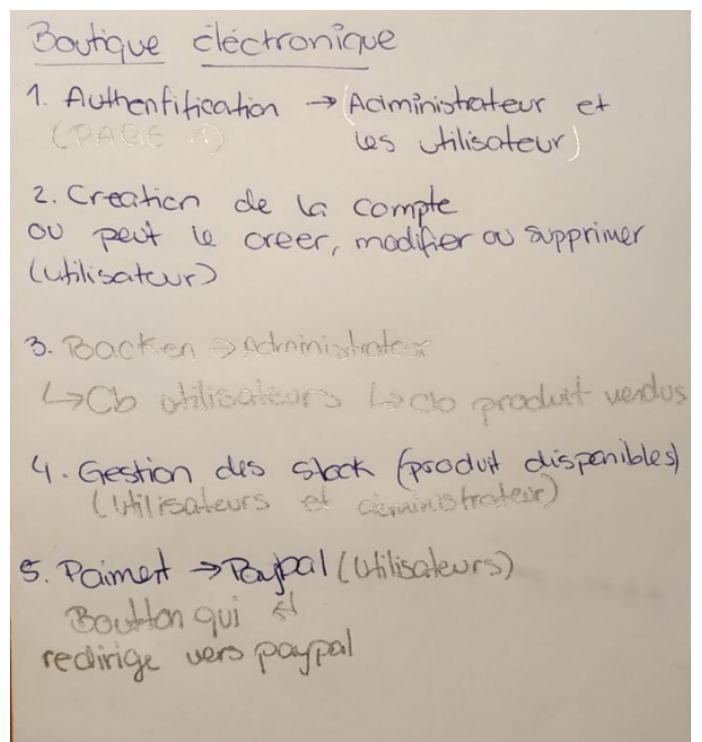 Boutique éléctronique
1. Authentification → (Administrateur et
(PAGE 1) les utilisateur)
2. Creation de la compte
ou peut le creer, modifier ou supprimer
(utilisateur)
3. Backen → Administrateur
↳ Cb utilisateurs ↳ cb produit vendus
4. Gestion des stock (produit disponibles)
(Utilisateurs et administrateur)
5. Paiment → Paypal (Utilisateurs)
Boutton qui
redirige vers paypal